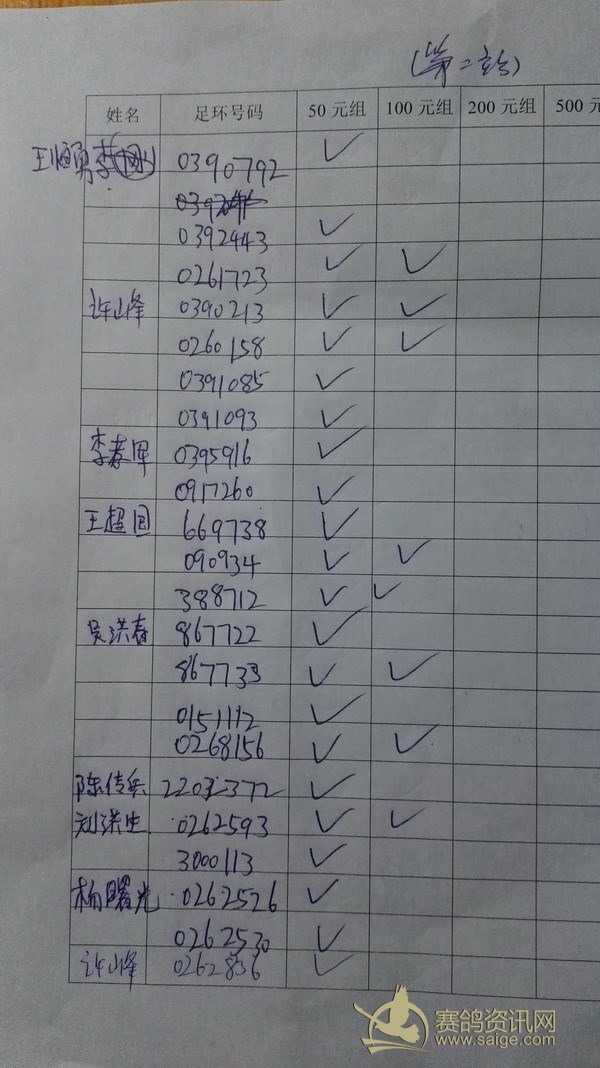 (第二站)
姓名 足环号码 50 元组 100 元组 200 元组 500 元
王恒勇 李 0390792 ✓
0392443 ✓
0261723 ✓ ✓
许山峰 0390213 ✓ ✓
0260158 ✓ ✓
0391085 ✓
0391093 ✓
李春晖 0395916 ✓
0917260 ✓
王超国 669738 ✓
090934 ✓ ✓
388712 ✓ ✓
吴洪春 867722 ✓
867733 ✓ ✓
0151112 ✓
0268156 ✓ ✓
陈传兵 2203372 ✓
刘洪生 0262593 ✓ ✓
3000113 ✓
杨曙光 0262526 ✓
0262530 ✓
许山峰 0262836 ✓
赛鸽资讯网
www.saige.com